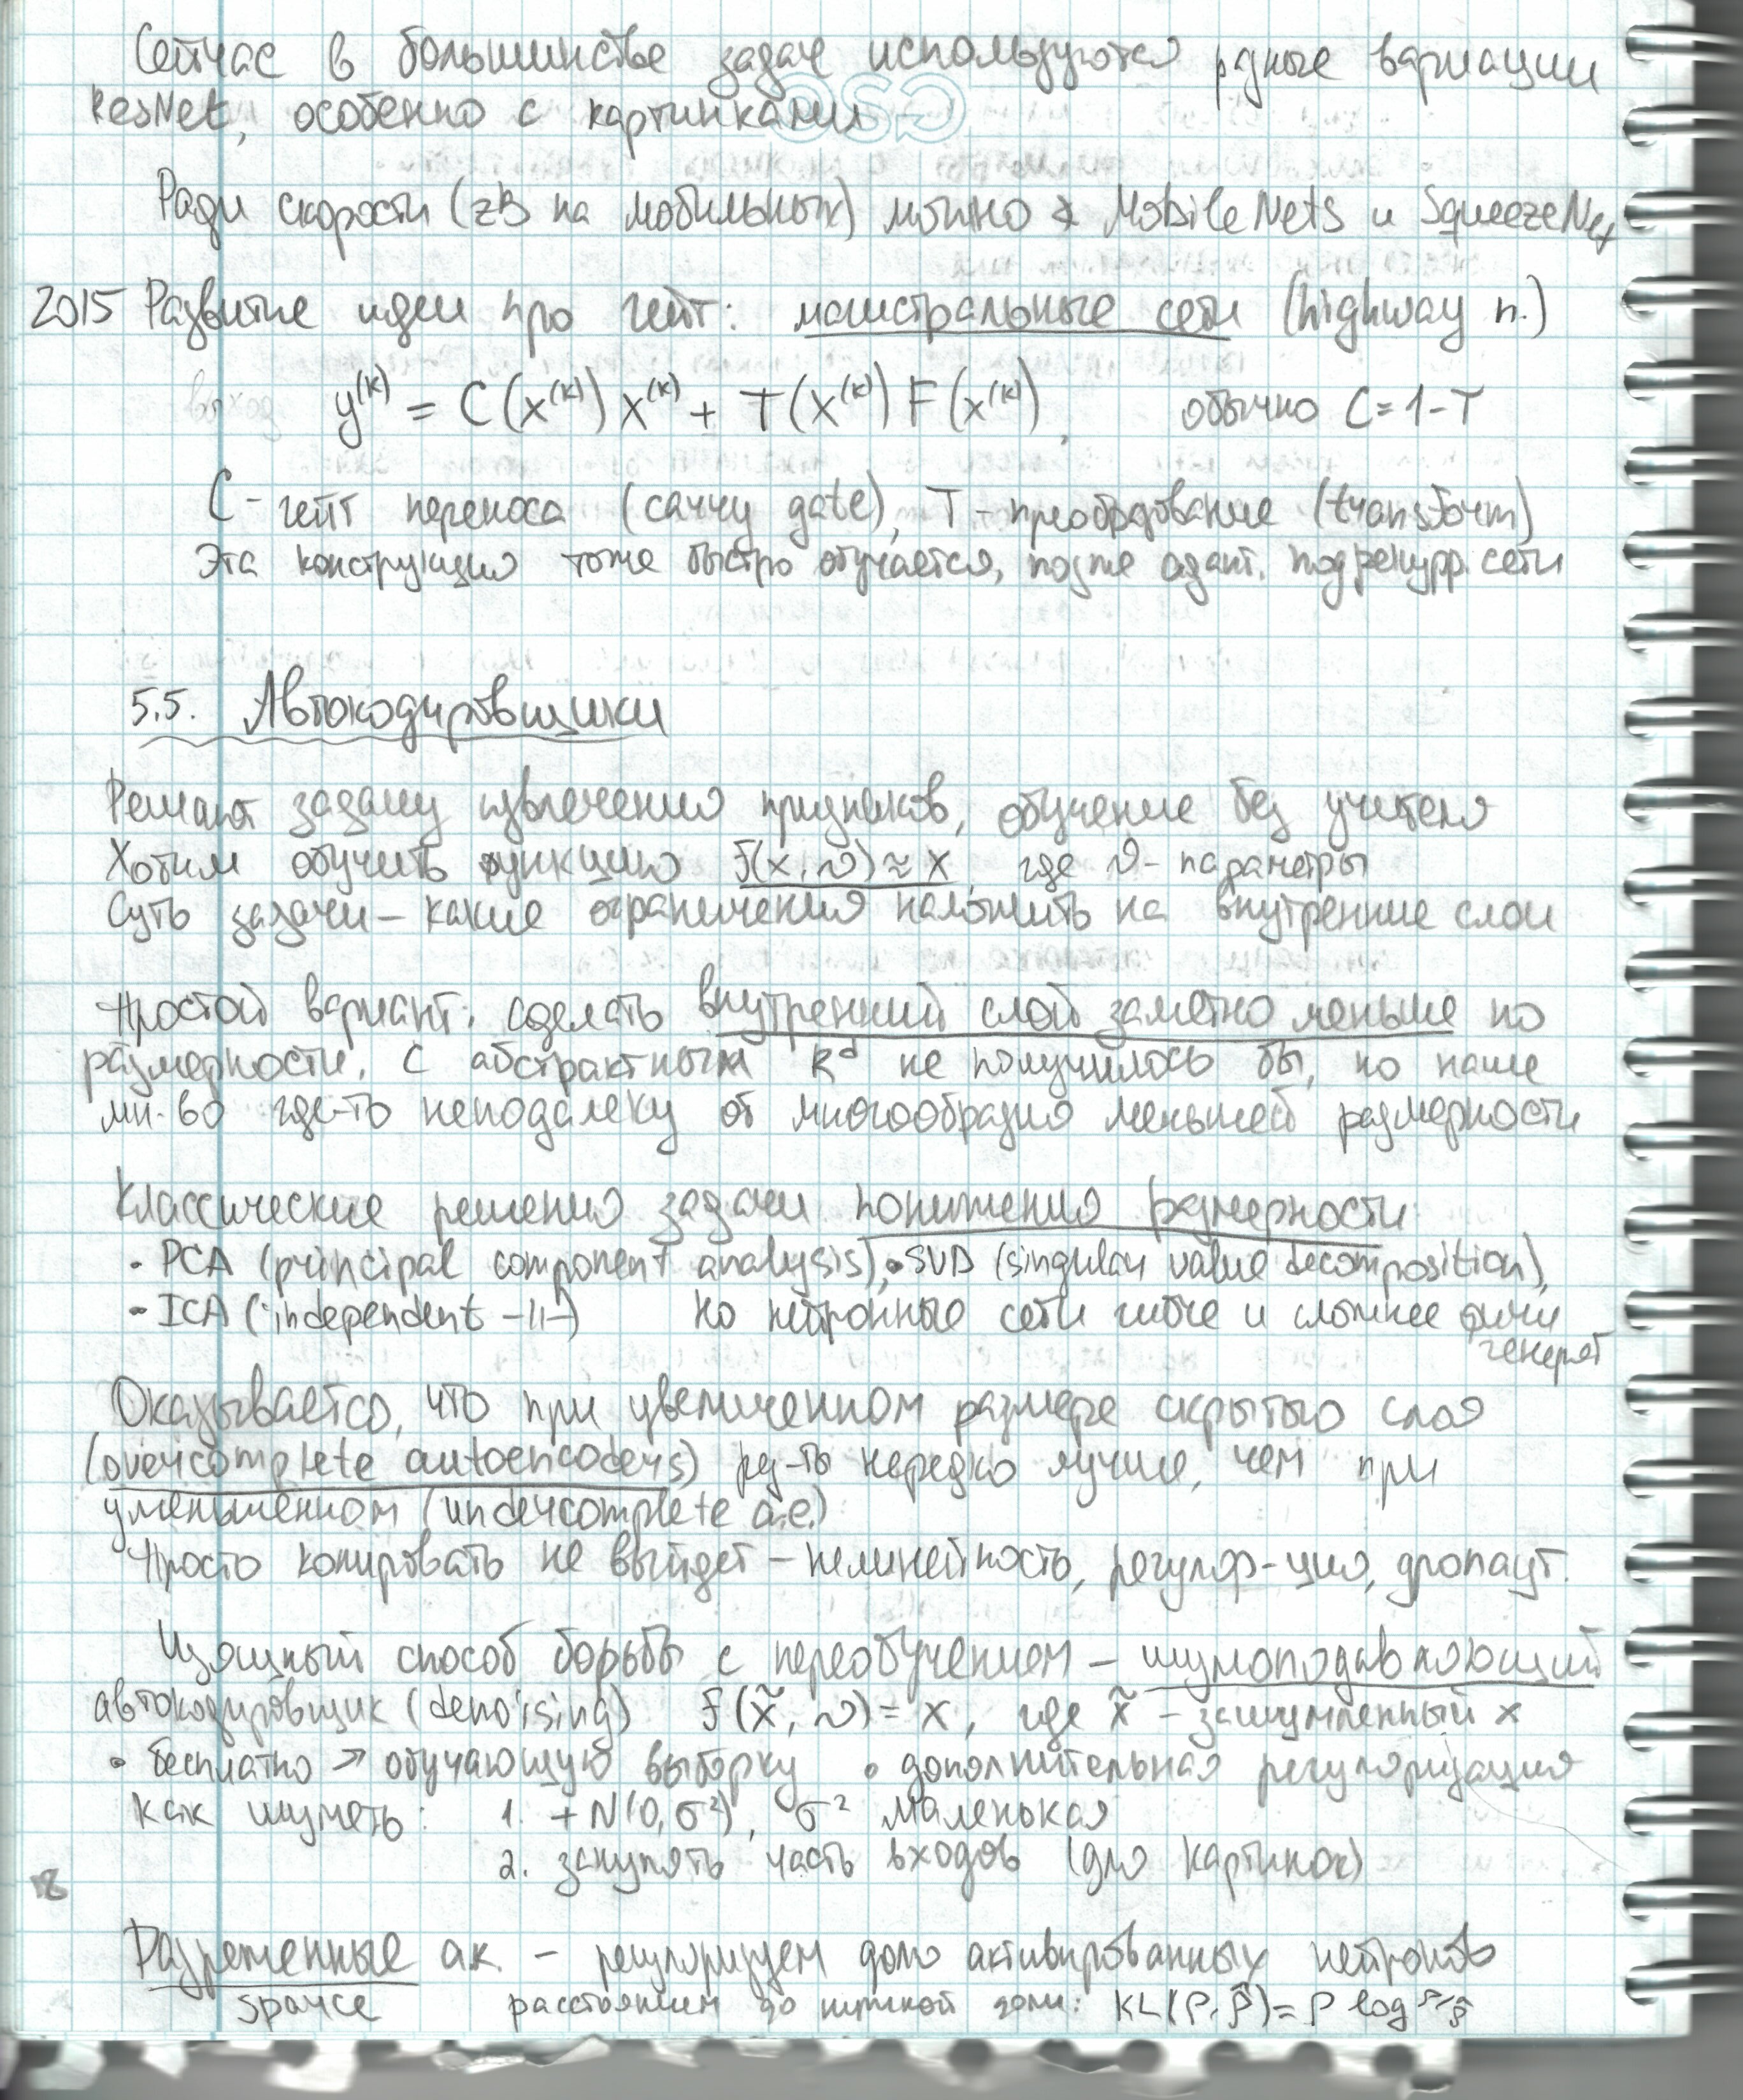 Сейчас в большинстве задач используются разные вариации
ResNet, особенно с картинками
Ради скорости (zB на мобильных) можно MobileNets и SqueezeNet
2015 Развитие идеи про гейт: магистральные сети (highway n.)
выход y^(k) = C(x^(k)) x^(k) + T(x^(k)) F(x^(k)), обычно C=1-T
C - гейт переноса (carry gate), T - преобразование (transform)
Эта конструкция тоже быстро обучается, позже адапт. под рекурр. сети
5.5. Автокодировщики
Решают задачу извлечения признаков, обучение без учителя
Хотим обучить функцию F(x, ν) ≈ x, где ν - параметры
Суть задачи - какие ограничения наложить на внутренние слои
Простой вариант: сделать внутренний слой заметно меньше по
размерности. С абстрактным R^d не получилось бы, но наше
мн-во где-то неподалёку от многообразия меньшей размерности
Классические решения задачи понижения размерности:
• PCA (principal component analysis), • SVD (singular value decomposition),
• ICA (independent -11-) Но нейронные сети гибче и сложнее фичи
генерят
Оказывается, что при увеличенном размере скрытого слоя
(overcomplete autoencoders) рез-ты нередко лучше, чем при
уменьшенном (undercomplete a.e.)
Просто копировать не выйдет - нелинейность, регуляр-ция, дропаут.
Изящный способ борьбы с переобучением - шумоподавляющий
автокодировщик (denoising) F(x̃, ν) = x, где x̃ - зашумленный x
• бесплатно ↗ обучающую выборку • дополнительная регуляризация
Как шуметь: 1. + N(0, σ²), σ² маленькая
2. занулять часть входов (для картинок)
18
Разреженные а.к. - регуляризуем долю активированных нейронов
sparse расстоянием до нужной доли: KL(ρ, ρ̂) = ρ log ρ/ρ̂